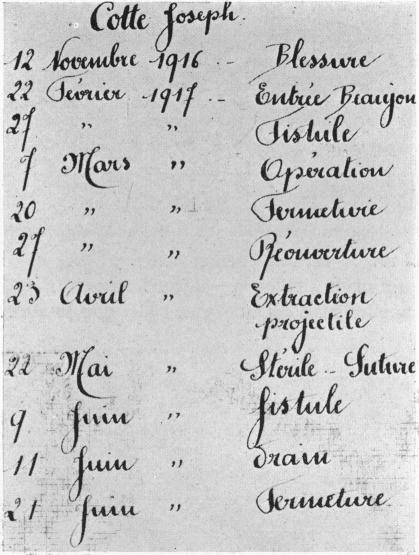 Cotte Joseph.
12 Novembre 1916 .. Blessure
22 Février 1917 .. Entrée Beaujon
27 " " Fistule
7 Mars " Opération
20 " " Fermeture
27 " " Réouverture
23 Avril " Extraction
projectile
22 Mai " Stérile .. Suture
9 Juin " fistule
11 Juin " drain
21 Juin " Fermeture.